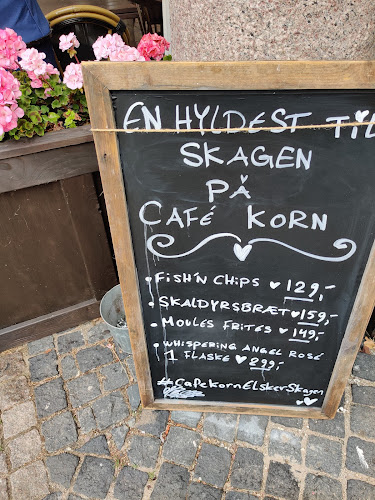 EN HYLDEST TIL
SKAGEN
PÅ
CAFÉ KORN
• FISH'N CHIPS ♥ 129,-
• SKALDYRSBRÆT ♥ 159,-
• MOULES FRITES ♥ 149,-
• WHISPERING ANGEL ROSÉ
1 FLASKE ♥ 299,-
#CafekornElskerSkagen